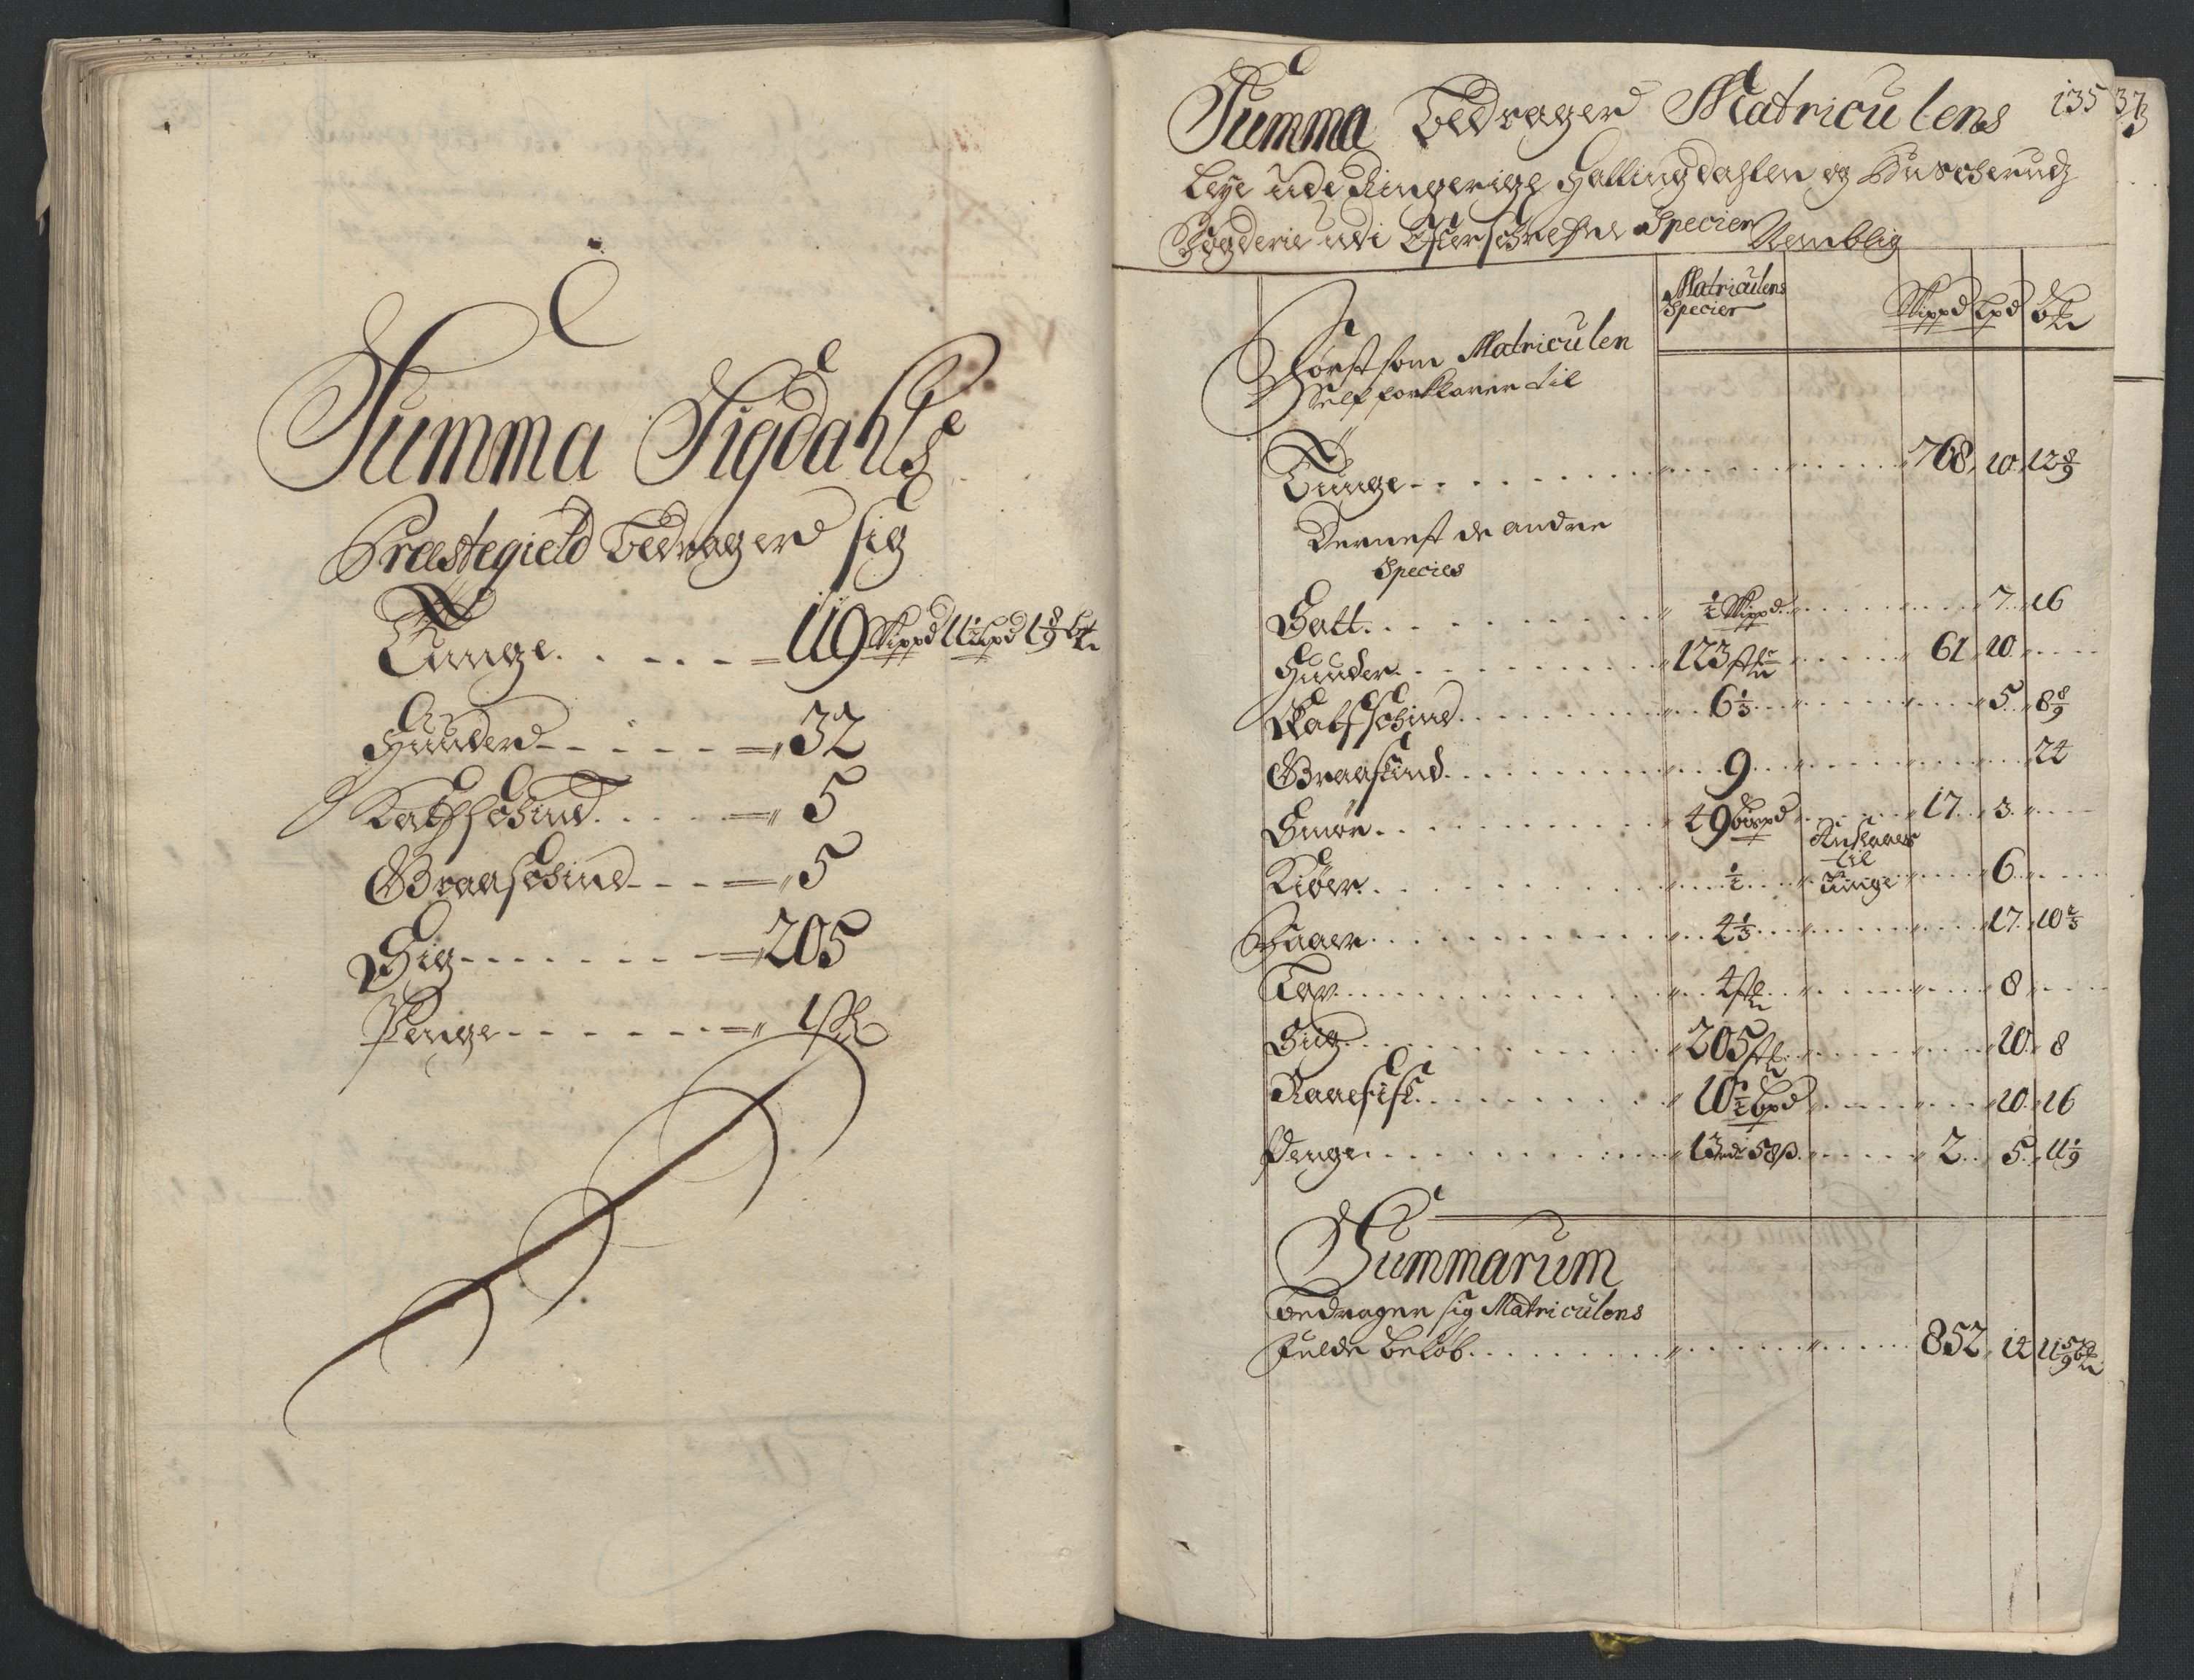 Summa Sigdahls
Præstegield bedrager sig
Tunge - - - - 119 Skippd 11½ Lpd 1 8/9 b
Huuder - - - - 32
Kalfschind - - - - 5
Graaschind - - - 5
Big - - - - - - - 205
Penge - - - - - - 1
135
37
Summa Bedrager Matriculens
Leye udi Ringerige Hallingdahlen og Buscheruds
Fogderie udi Efterschrefne Specier Nemblig
Matriculens
Specier
Skippd Lpd
Først som Matriculen
Self forklarer til
Tunge - - - - 768 10 12 8/9
Dernest de andre
Species
Salt - - - - ½ Skippd - - - - 7 16
Huuder - - - - 123 - - - - 61 10 - -
Kalfschind - - - - 6⅓ - - - - 5 8 8/9
Graaskind - - - - 9 - - - - 24
Smør - - - - 49 - - - - 17 3 - -
Anslaaes
til
Tunge
Kiøer - - - - ½ - - - - 6 - -
Faaer - - - - 4⅓ - - - - 17 10⅔
Tov - - - - 4 - - - - 8 - -
Big - - - - 205 - - - - 10 8
Raaefisk - - - - 10½ Lpd - - - - 10 16
Penge - - - - 13 58 - - - - 2 5 11 1/9
Summarum
bedrager sig Matriculens
fulde beløb - - - - 852 14 11 5/9